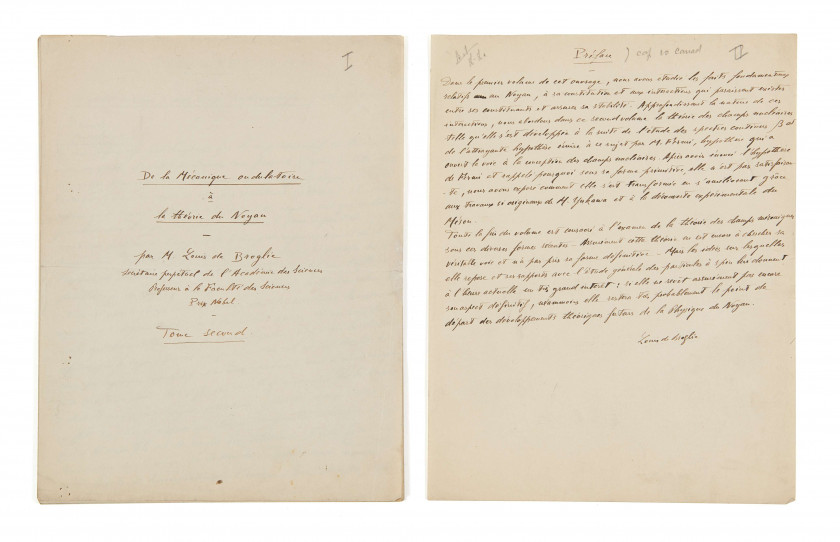 I
De la Mécanique ondulatoire
à
la théorie du Noyau
par M. Louis de Broglie
Secrétaire perpétuel de l'Académie des Sciences
Professeur à la Faculté des Sciences
Prix Nobel
Tome second
Préface
II
Dans le premier volume de cet ouvrage, nous avons étudié les faits fondamentaux
relatifs au Noyau, à sa constitution et aux interactions qui paraissent exister
entre ses constituants et assurer sa stabilité. Approfondissant la nature de ces
interactions, nous étudions dans ce second volume la théorie des champs nucléaires
telle qu'elle s'est développée à la suite de l'étude des spectres continus β et
de l'attrayante hypothèse émise à ce sujet par M. Fermi, hypothèse qui a
ouvert la voie à la conception des champs nucléaires. Après avoir énoncé l'hypothèse
de Fermi et rappelé pourquoi sous sa forme primitive, elle n'est pas satisfaisan-
te, nous avons exposé comment elle s'est transformée en s'améliorant grâce
aux travaux si originaux de M. Yukawa et à la découverte expérimentale du
Méson.
Toute la fin du volume est consacré à l'examen de la théorie des champs mésoniques
sous ces diverses formes. Assurément cette théorie en est encore à chercher sa
véritable voie et n'a pas pris sa forme définitive. Mais les idées sur lesquelles
elle repose et ses rapports avec l'étude générale des particules à spin lui donnent
à l'heure actuelle un très grand intérêt; si elle ne revêt assurément pas encore
son aspect définitif, néanmoins elle restera très probablement le point de
départ des développements théoriques futurs de la Physique du Noyau.
Louis de Broglie